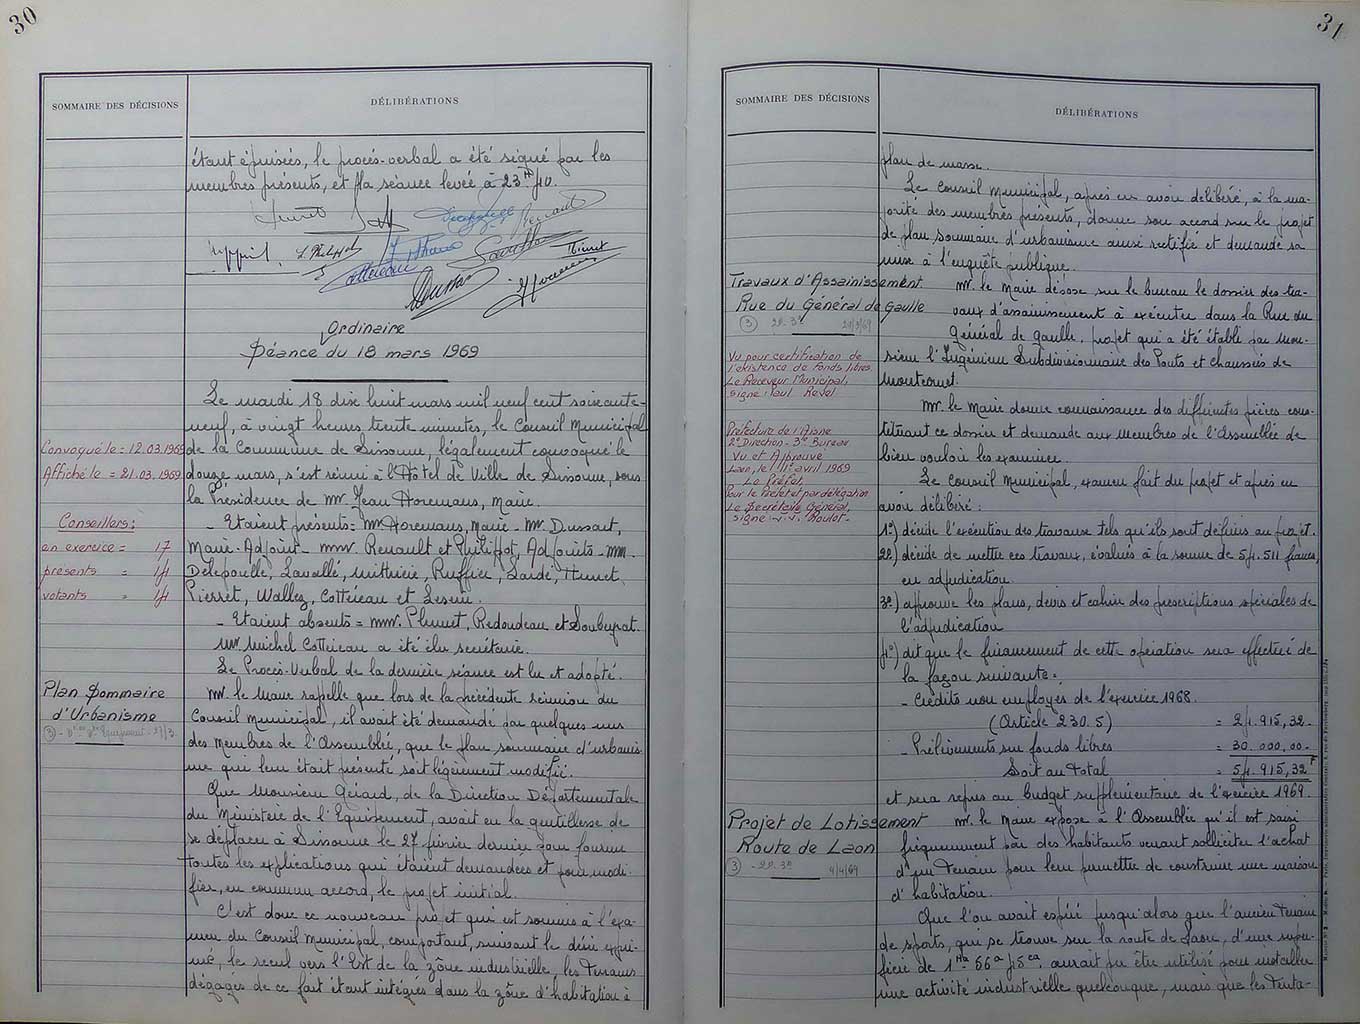 30
SOMMAIRE DES DÉCISIONS
DÉLIBÉRATIONS
étant épuisés, le procès-verbal a été signé par les
membres présents, et la séance levée à 23H 40.
Ordinaire
Séance du 18 mars 1969
Le mardi 18 dix huit mars mil neuf cent soixante-
neuf, à vingt heures trente minutes, le Conseil Municipal
Convoqué le = 12.03.1969
de la Commune de Sissonne, légalement convoqué le
Affiché le = 21.03.1969
douze mars, s'est réuni à l'Hôtel de Ville de Sissonne, sous
la Présidence de Mr. Jean Horemans, Maire.
Conseillers:
- Etaient présents = Mr. Horemans, Maire - Mr. Dussart,
en exercice = 17
Maire-Adjoint - MM. Renault et Philippot, Adjoints - MM.
présents = 14
Delepoulle, Lavallé, Ruffier, Lardé, Hunet,
votants = 14
Pierret, Wallez, Cottereau et Lesein.
- Etaient absents = MM. Redoudeau et Soubeyrat.
Mr. Michel Cottereau a été élu secrétaire.
Le Procès-Verbal de la dernière séance est lu et adopté.
Plan Sommaire
d'Urbanisme
Mr. le Maire rapelle que lors de la précédente réunion du
Conseil Municipal, il avait été demandé par quelques uns
des Membres de l'Assemblée, que le plan sommaire d'urbanis-
me qui leur était présenté soit légèrement modifié.
Que Monsieur Gérard, de la Direction Départementale
du Ministère de l'Equipement, avait eu la gentillesse de
se déplacer à Sissonne le 27 février dernier pour fournir
toutes les explications qui étaient demandées et pour modi-
fier, en commun accord, le projet initial.
C'est donc ce nouveau projet qui est soumis à l'exa-
men du Conseil Municipal, comportant, suivant le désir expri-
mé, le recul vers l'Est de la zône industrielle, les terrains
dégagés de ce fait étant intégrés dans la zône d'habitation à
31
SOMMAIRE DES DÉCISIONS
DÉLIBÉRATIONS
plan de masse.
Le Conseil Municipal, après en avoir délibéré, à la ma-
jorité des membres présents, donne son accord sur le projet
de plan sommaire d'urbanisme ainsi rectifié et demande sa
mise à l'enquête publique.
Travaux d'Assainissement
Rue du Général de Gaulle
Mr. le Maire dépose sur le bureau le dossier des tra-
vaux d'assainissement à exécuter dans la Rue du
Général de Gaulle, projet qui a été établi par Mon-
sieur l'Ingénieur Subdivisionnaire des Ponts et Chaussées de
Montcornet.
Vu pour certification de
l'existence de fonds libres.
Le Receveur Municipal,
signé: Paul Revel
Mr. le Maire donne connaissance des différentes pièces cons-
tituant ce dossier et demande aux Membres de l'Assemblée de
bien vouloir les examiner.
Préfecture de l'Aisne
2e Direction - 3e Bureau
Vu et Approuvé
Laon, le 11 avril 1969
Le Préfet,
Pour le Préfet et par délégation
Le Secrétaire Général,
Le Conseil Municipal, examen fait du projet et après en
avoir délibéré:
1°) décide l'exécution des travaux tels qu'ils sont définis au projet.
2°) décide de mettre ces travaux, évalués à la somme de 54.511 francs,
en adjudication.
3°) approuve les plans, devis et cahier des prescriptions spéciales de
l'adjudication
4°) dit que le financement de cette opération sera effectué de
la façon suivante:
- Crédits non employés de l'exercice 1968.
(Article 230.5) = 24.915,32-
- Prélèvements sur fonds libres = 30.000,00-
Soit au total = 54.915,32F
et sera repris au budget supplémentaire de l'exercice 1969.
Projet de Lotissement
Route de Laon
Mr. le Maire expose à l'Assemblée qu'il est saisi
fréquemment par des habitants venant solliciter l'achat
d'un terrain pour leur permettre de construire une maison
d'habitation.
Que l'on avait espéré jusqu'alors que l'ancien terrain
de sports, qui se trouve sur la route de Laon, d'une super-
ficie de 1Ha 56a 45ca, aurait pu être utilisé pour installer
une activité industrielle quelconque, mais que les tenta-